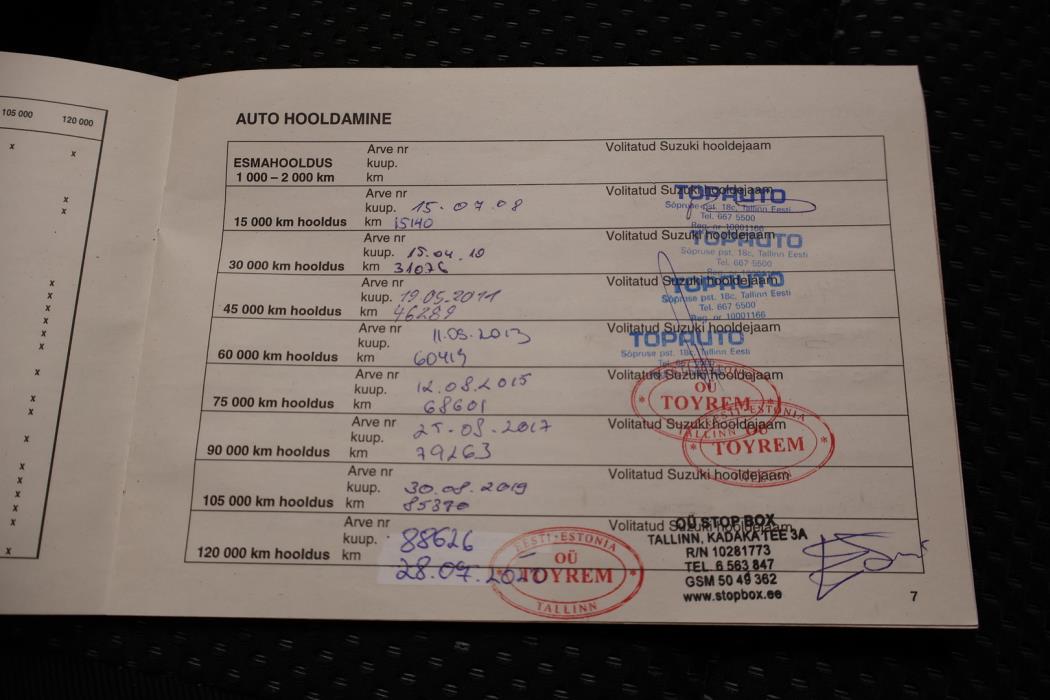 105 000 120 000
AUTO HOOLDAMINE
ESMAHOOLDUS
1 000 – 2 000 km
Arve nr
kuup.
km
Volitatud Suzuki hooldejaam
15 000 km hooldus
Arve nr
kuup. 15.07.08
km 15140
Volitatud Suzuki hooldejaam
TOPAUTO
Sõpruse pst. 18c, Tallinn Eesti
Tel. 667 5500
Reg. nr 10001166
30 000 km hooldus
Arve nr
kuup. 15.04.10
km 31076
Volitatud Suzuki hooldejaam
TOPAUTO
Sõpruse pst. 18c, Tallinn Eesti
Tel. 667 5500
45 000 km hooldus
Arve nr
kuup. 19.05.2011
km 46289
Volitatud Suzuki hooldejaam
TOPAUTO
Sõpruse pst. 18c, Tallinn Eesti
Tel. 667 5500
Reg. nr 10001166
60 000 km hooldus
Arve nr
kuup. 11.03.2013
km 60419
Volitatud Suzuki hooldejaam
TOPAUTO
Sõpruse pst. 18c, Tallinn Eesti
75 000 km hooldus
Arve nr
kuup. 12.08.2015
km 68601
Volitatud Suzuki hooldejaam
OÜ
TOYREM
TALLINN
90 000 km hooldus
Arve nr
kuup. 25.08.2017
km 79263
Volitatud Suzuki hooldejaam
EESTI-ESTONIA
OÜ
TOYREM
105 000 km hooldus
Arve nr
kuup. 30.08.2019
km 85370
Volitatud Suzuki hooldejaam
120 000 km hooldus
Arve nr
kuup. 88626
km 28.07.2020
Volitatud Suzuki hooldejaam
EESTI-ESTONIA
OÜ
TOYREM
TALLINN
OÜ STOP BOX
TALLINN, KADAKA TEE 3A
R/N 10281773
TEL. 6 563 847
GSM 50 49 362
www.stopbox.ee
7